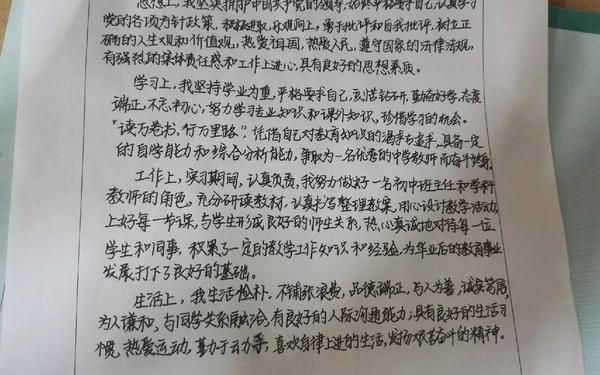 思想上,我坚决拥护中国共产党的领导,始终严格要求自己,认真学习
党的各项方针政策,积极进取,乐观向上,勇于批评和自我批评,树立正
确的人生观和价值观,热爱祖国,热爱人民,遵守国家的法律法规,
有强烈的集体责任感和工作上进心,具有良好的思想素质。
学习上,我坚持学业为重,严格要求自己,刻苦钻研,勤奋好学,态度
端正,不忘初心,努力学习专业知识和课外知识,珍惜学习的机会。
“读万卷书,行万里路”。凭借自己对教育知识的渴求与追求,具备一定
的自学能力和综合分析能力,争取为一名优秀的中学教师而奋斗终身。
工作上,实习期间,认真负责,我努力做好一名初中班主任和学科
教师的角色,充分研读教材,认真书写整理教案,用心设计教学活动,
上好每一节课,与学生形成良好的师生关系,热心真诚地对待每一位
学生和同事,积累了一定的教学工作知识和经验,为毕业后的教育事业
发展打下了良好的基础。
生活上,我生活检朴,不铺张浪费,品德端正,与人为善,诚实笃信,
为人谦和,与同学关系融洽,有良好的人际沟通能力,具有良好的生活习
惯,热爱运动,勤于动手,喜欢自律上进的生活,发扬艰苦奋斗的精神。